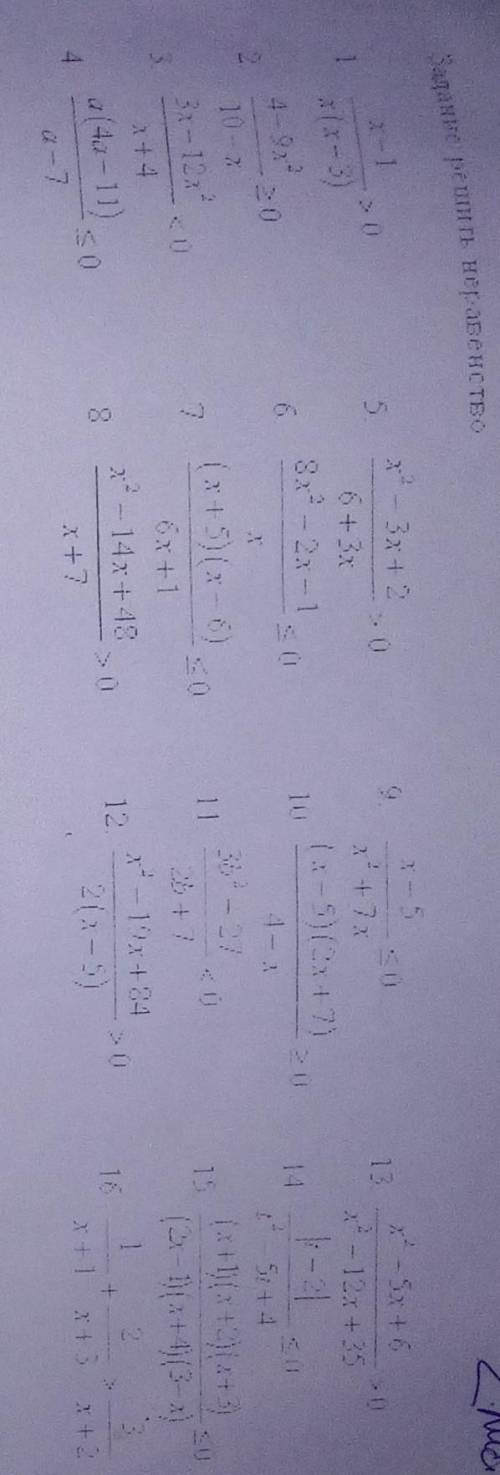 Задание решить неравенство
1 \frac{x-1}{x(x-3)} > 0
2 \frac{4-9x^2}{10-x} ≥ 0
3 \frac{3x-12x^2}{x+4} < 0
4 \frac{a(4a-11)}{a-7} ≤ 0
5. \frac{x^2-3x+2}{6+3x} > 0
6 \frac{8x^2-2x-1}{x} ≤ 0
7 \frac{(x+5)(x-6)}{6x+1} ≤ 0
8 \frac{x^2-14x+48}{x+7} > 0
9. \frac{x-5}{x^2+7x} ≤ 0
10 \frac{(x-5)(2x+7)}{4-x} ≥ 0
11 \frac{3b^2-27}{2b+7} < 0
12. \frac{x^2-19x+84}{2(x-5)} > 0
13 \frac{x^2-5x+6}{x^2-12x+35} > 0
14 \frac{|x-2|}{x^2-5x+4} ≤ 0
15 \frac{(x+1)(x+2)(x+3)}{(2x-1)(x+4)(3-x)} ≤ 0
16 \frac{1}{x+1} + \frac{2}{x+3} > \frac{3}{x+2}